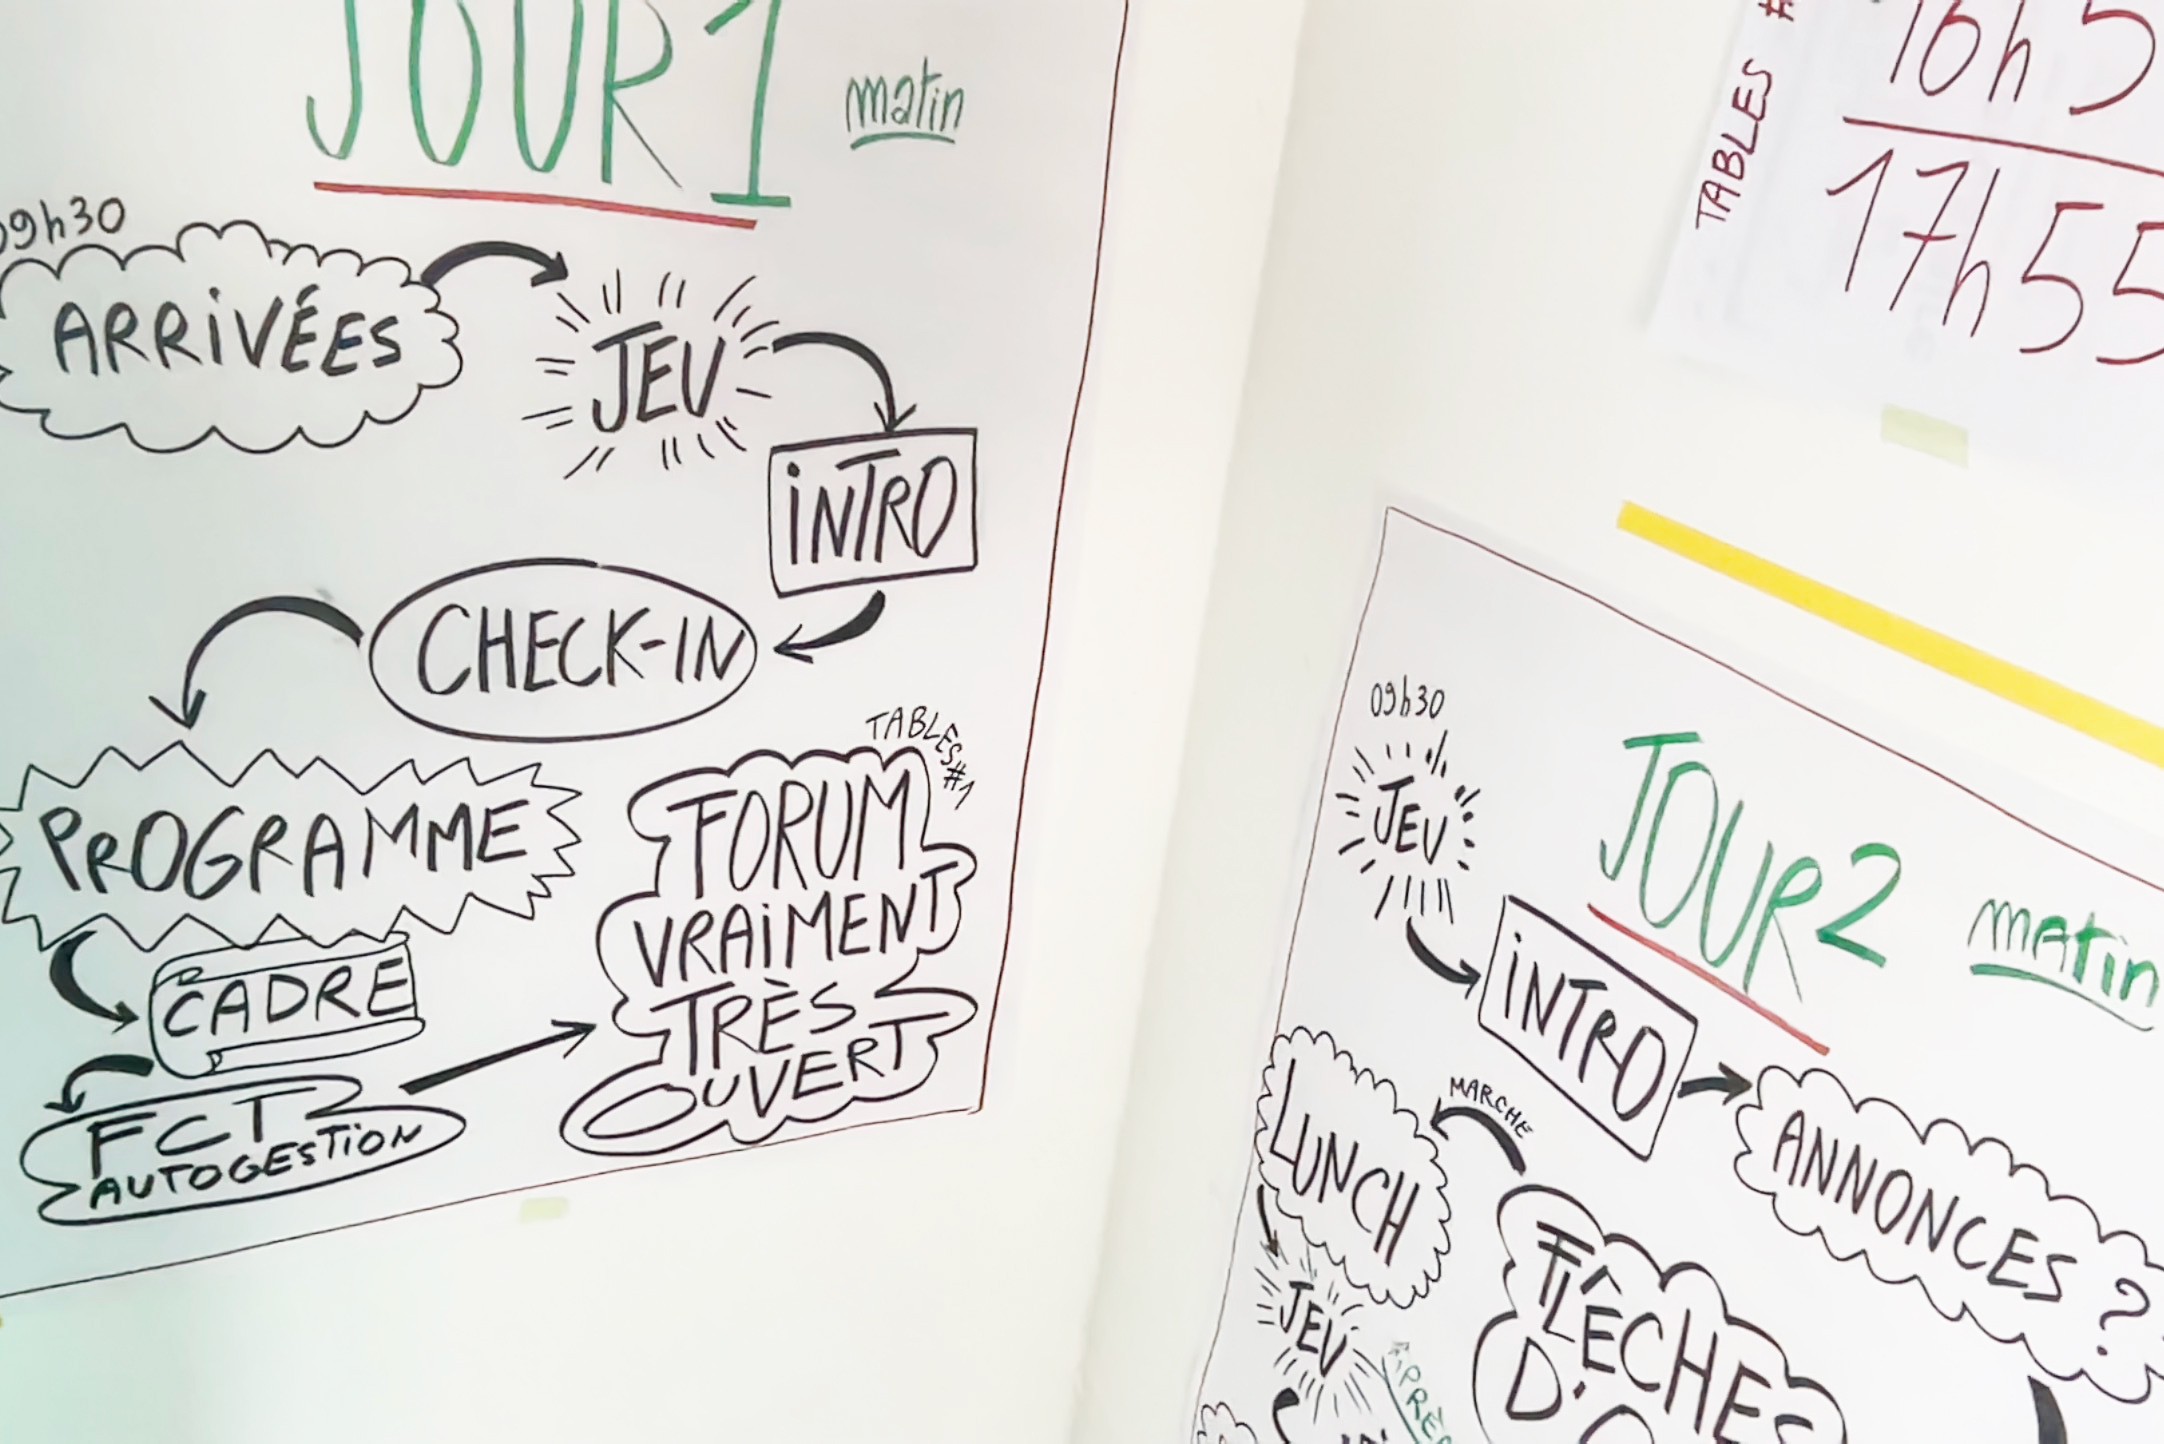 JOUR 1
matin
09h30
ARRIVÉES
JEU
INTRO
CHECK-IN
PROGRAMME
CADRE
FCT
AUTOGESTION
TABLES #1
FORUM
VRAIMENT
TRÈS
OUVERT
TABLES #
16h5
17h55
09h30
JEU
JOUR 2
matin
INTRO
ANNONCES ?
FLÊCHES
D'O
MARCHE
LUNCH
JEU